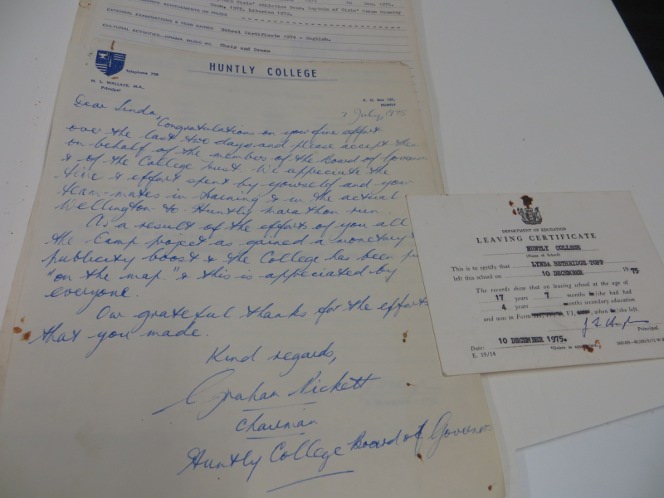 School Certificate 1974 - English.
Choir and Drama
Telephone
HUNTLY COLLEGE
M. L. WALLACE, M.A.,
Principal
HUNTLY
7 July, 1975
Dear Linda,
Congratulations on your fine effort
over the last two days and please accept this
on behalf of the members of the Board of Governors
& of the College
We appreciate the
time & effort spent by yourself and your
team-mates in training & in the actual
Wellington to Huntly marathon run.
As a result of the efforts of you all
the Camp project as gained a monetary
publicity boost & the College has been
"on the map" & this is appreciated by
everyone.
Our grateful thanks for the efforts
that you made.
Kind regards,
Graham Rickett
Chairman
Huntly College Board of Governors
DEPARTMENT OF EDUCATION
LEAVING CERTIFICATE
HUNTLY COLLEGE
(Name of School)
This is to certify that LYNDA BETHRIDGE TOFF
left this school on 10 DECEMBER 1975
The records show that on leaving school at the age of
17 years 7 months she had had
4 years months secondary education
and was in Form VI, when she left.
Principal.
Date: 10 DECEMBER 1975.
E. 19/14